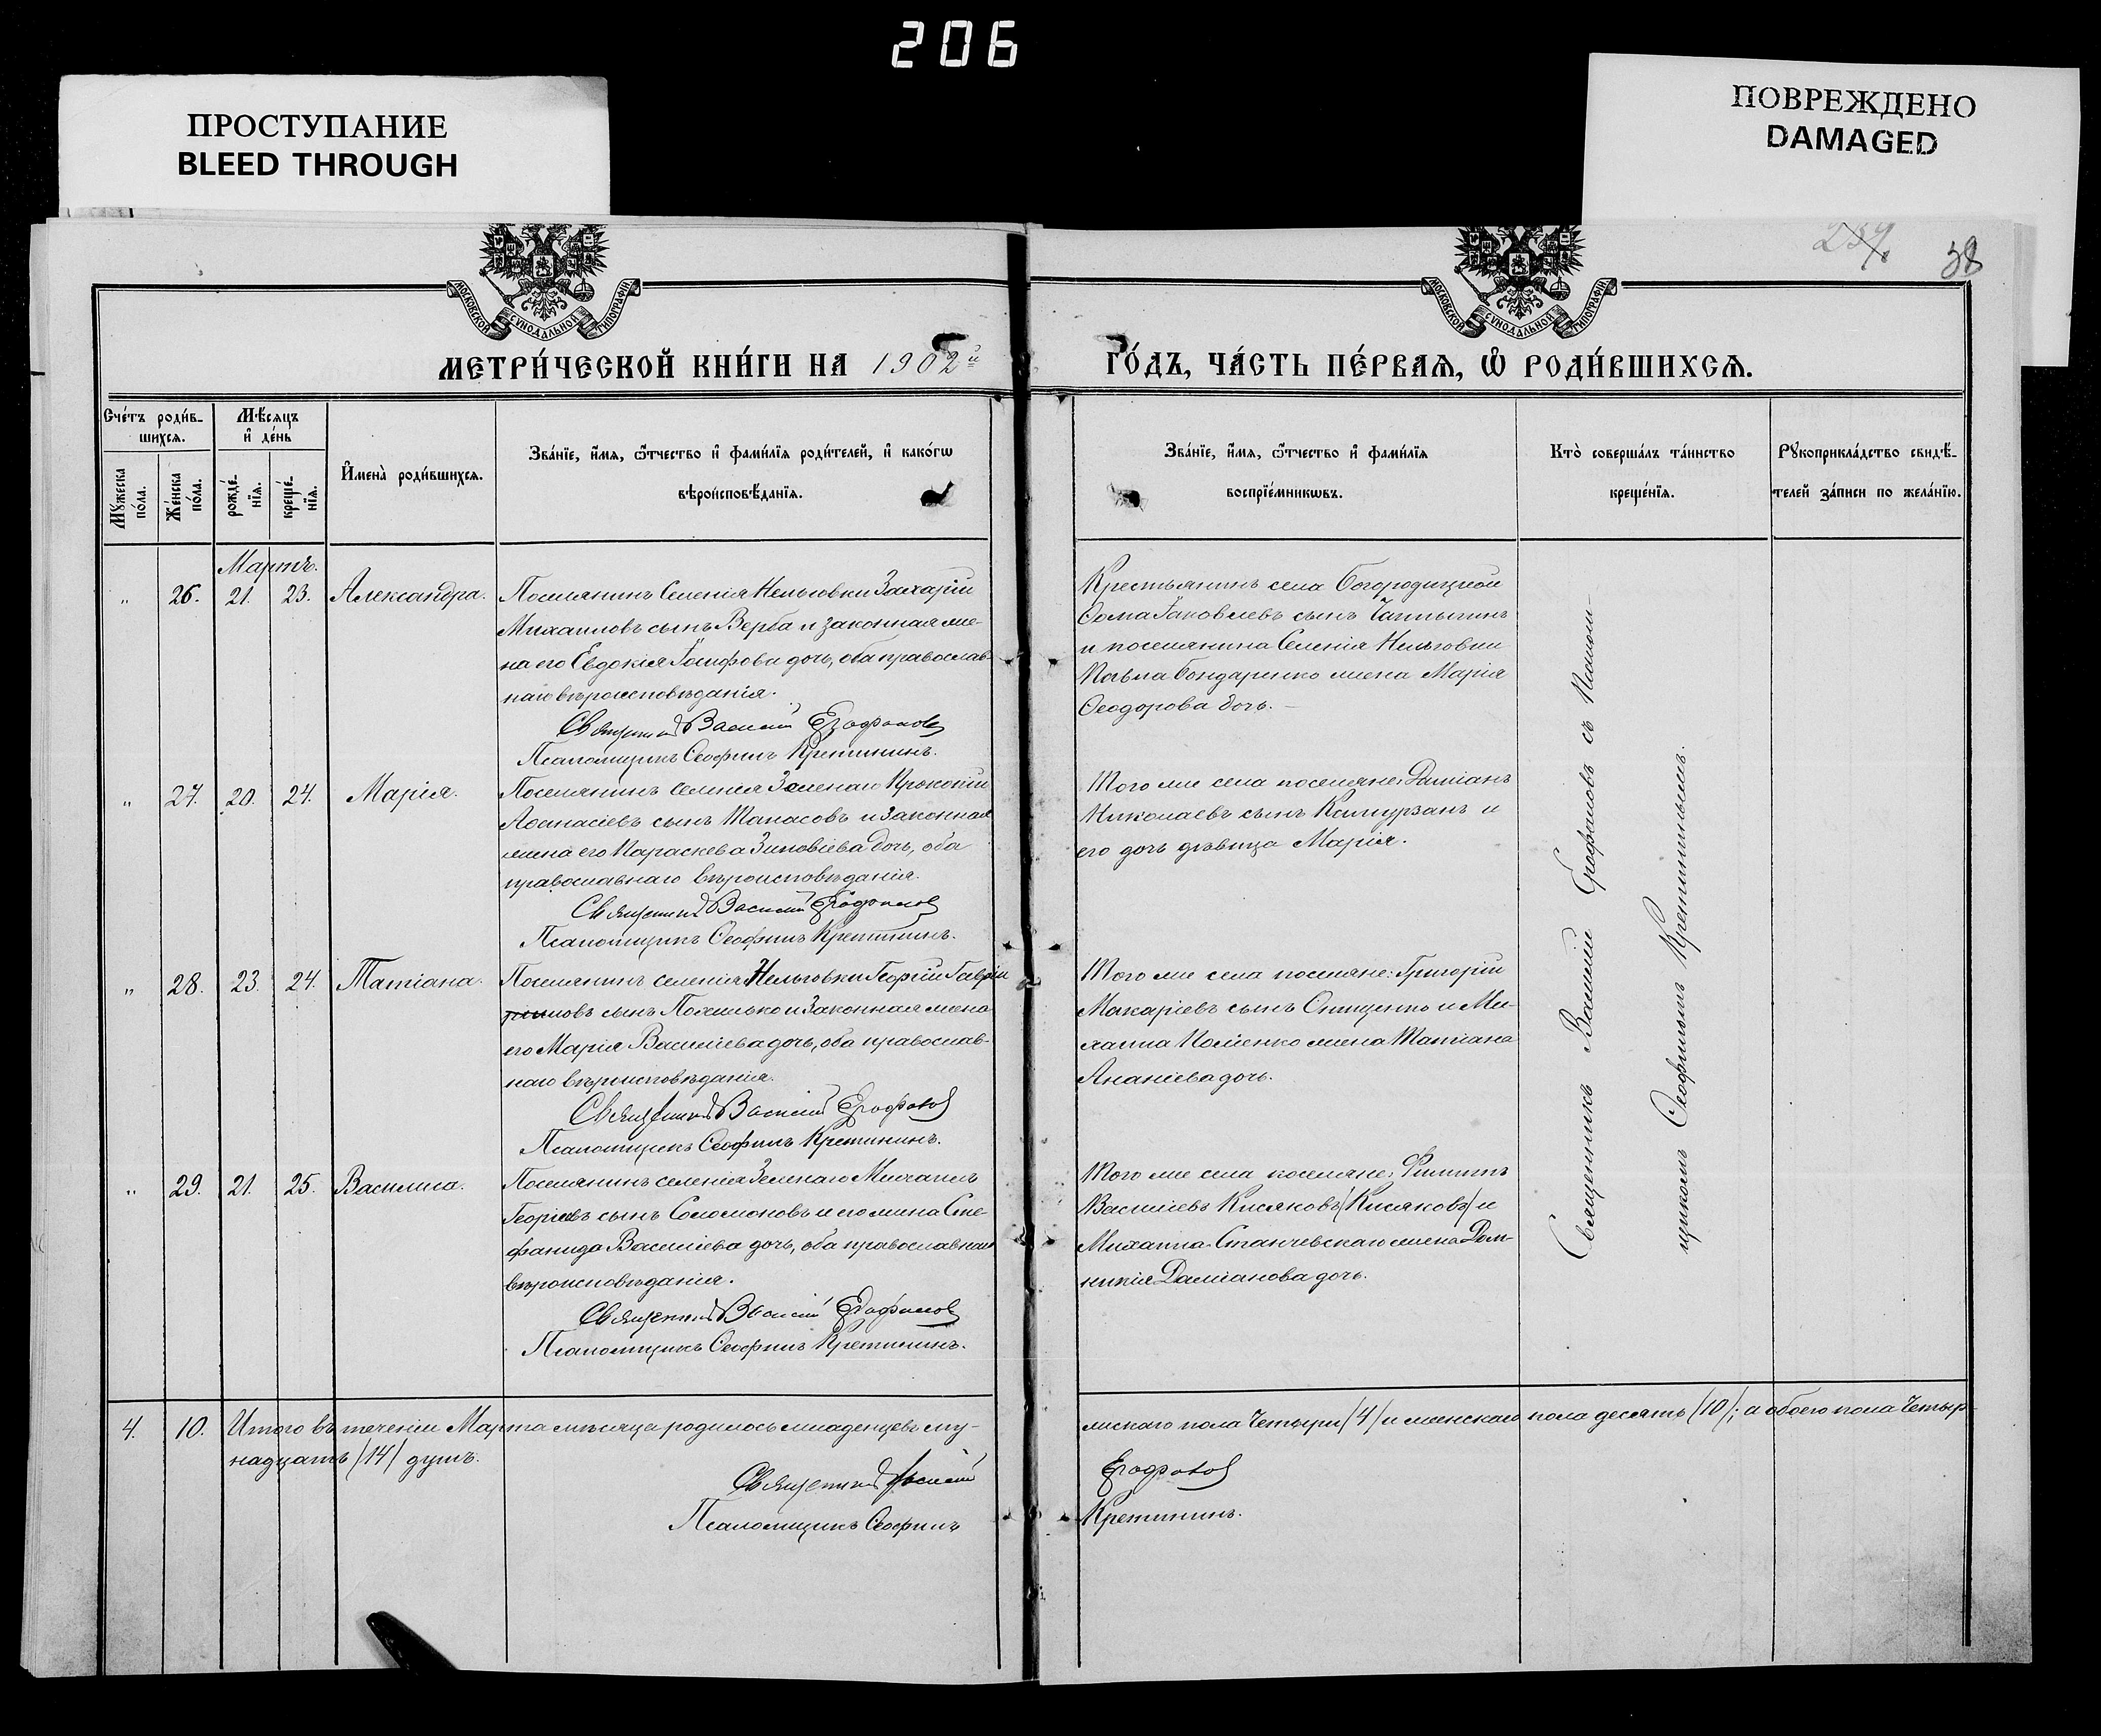 206
ПРОСТУПАНИЕ
BLEED THROUGH
ПОВРЕЖДЕНО
DAMAGED
239
38
МОСКОВСКОЙ СѴНОДАЛЬНОЙ ТИПОГРАФІИ
МОСКОВСКОЙ СѴНОДАЛЬНОЙ ТИПОГРАФІИ
МЕТРИ́ЧЕСКОЙ КНИ́ГИ НА 1902й
ГО́ДЪ, ЧА́СТЬ ПЕ́РВАѦ, Ѡ҆ РОДИ́ВШИХСѦ.
Сче́тъ роди́в-
шихсѧ.
Мѣ́сѧцъ
и҆ де́нь
Мꙋ́жеска по́ла.
Же́нска по́ла.
рожде́нїѧ.
креще́нїѧ.
И҆мена̀ роди́вшихсѧ.
Зва́нїе, и҆́мѧ, ѻ҆́тчество и҆ фами́лїѧ роди́телей, и҆ како́гѡ
вѣроисповѣ́данїѧ.
Зва́нїе, и҆́мѧ, ѻ҆́тчество и҆ фами́лїѧ
воспрїе́мникѡвъ.
Кто̀ соверша́лъ та́инство
креще́нїѧ.
Рꙋкоприкла́дство свидѣ́-
телей за́писи по жела́нїю.
Мартъ.
" 26. 21. 23. Александра. Поселянинъ Селенія Нельговки Захарій
Михаиловъ сынъ Верба и законная же-
на его Евдокія Іосифова дочь, оба православ-
наго вѣроисповѣданія.
Священникъ Василій Ерофаловъ
Псаломщикъ Ѳеофилъ Кретининъ.
Крестьянинъ села Богородицкой
Ѳома Іаковлевъ сынъ Чаплыгинъ
и поселянина Селенія Нельговки
Павла Бондаренко жена Марія
Ѳеодорова дочь.
" 27. 20. 24. Марія. Поселянинъ селенія Зеленаго Прокопій
Аѳанасіевъ сынъ Танасовъ и законная
жена его Параскева Зиновіева дочь, оба
православнаго вѣроисповѣданія.
Священникъ Василій Ерофаловъ
Псаломщикъ Ѳеофилъ Кретининъ.
Того же села поселяне: Даміанъ
Николаевъ сынъ и
его дочь дѣвица Марія.
" 28. 23. 24. Татіана. Поселянинъ селенія Нельговки Георгій Гаврі
иловъ сынъ Похилько и законная жена
его Марія Василіева дочь, оба православ-
наго вѣроисповѣданія.
Священникъ Василій Ерофаловъ
Псаломщикъ Ѳеофилъ Кретининъ.
Того же села поселяне: Григорій
Макаріевъ сынъ Онищенко и Ми-
хаила жена Татіана
Ананіева дочь.
" 29. 21. 25. Василиса. Поселянинъ селенія Зеленаго Михаилъ
Георгіевъ сынъ Соломоновъ и его жена Сте-
фанида Василіева дочь, оба православнаго
вѣроисповѣданія.
Священникъ Василій Ерофаловъ
Псаломщикъ Ѳеофилъ Кретининъ.
Того же села поселяне: Филиппъ
Василіевъ Кисяковъ /Кисяковъ/ и
Михаила Станчевскаго жена Дом-
никія Даміанова дочь.
Священникъ Василій Ерофаловъ съ Псалом-
щикомъ Ѳеофиломъ Кретининымъ.
4. 10. Итого въ теченіи Марта мѣсяца родилось младенцевъ му-
жскаго пола четыре /4/ и женскаго пола десять /10/; а обоего пола четыр-
надцать /14/ душъ.
Священникъ Василій Ерофаловъ
Псаломщикъ Ѳеофилъ Кретининъ.